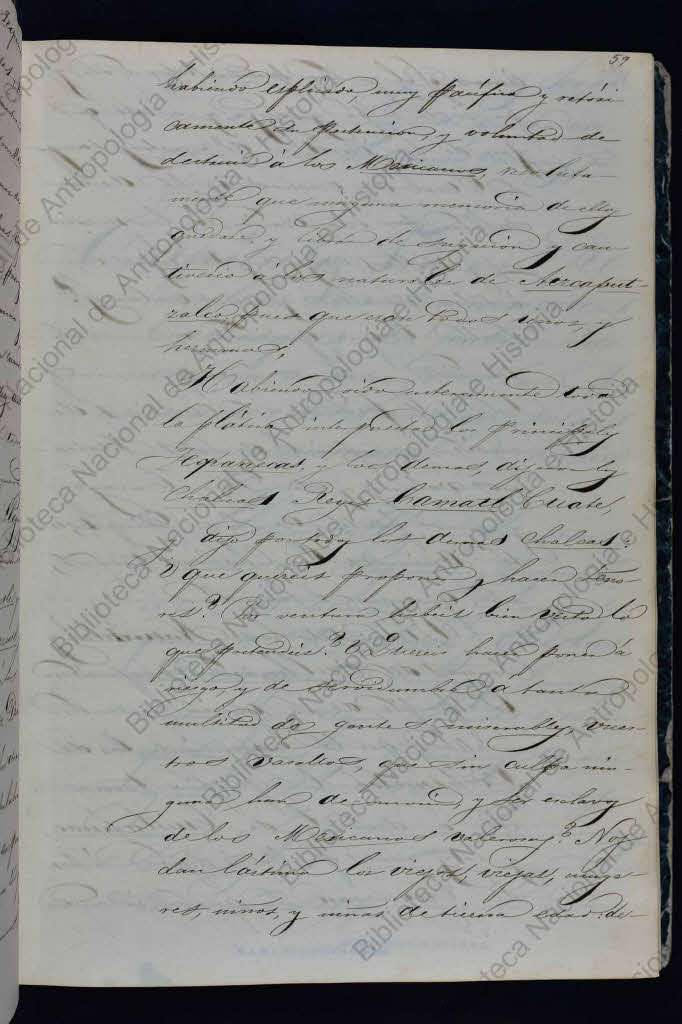 59
habiendo esplicado, muy pacifica y retóri
camente su pretencion y voluntad de
destruir á los Mexicanos, resoluta-
mente que ninguna memoria de ellos
quedare, y librar de sugecion y cau-
tiverio á los naturales de Azcaput-
zalco, pues que eran todos unos, y
hermanos,
Habiendo oido enteramente toda
la plática interpuesta los principales
Tepanecas, y los demas, dijeron los
Chalcas Reyes Camaxtl Cuatel,
y dijo por todos los demas Chalcas:
¿ que quereis proponer y hacer Seño-
res? Por ventura habeis bien visto lo
que pretendeis? ¿ Quereis hacer poner á
riesgo y de servidumbre á tanta
multitud de gentes miserables, vues-
tros vasallos, que sin culpa nin-
guna han de morir, y ser esclavos
de los Mexicanos valerosos? Nos
dan lástima los viejos, viejas, muge-
res, niños, y niñas de tierna edad: de-
Biblioteca Nacional de Antropología e Historia